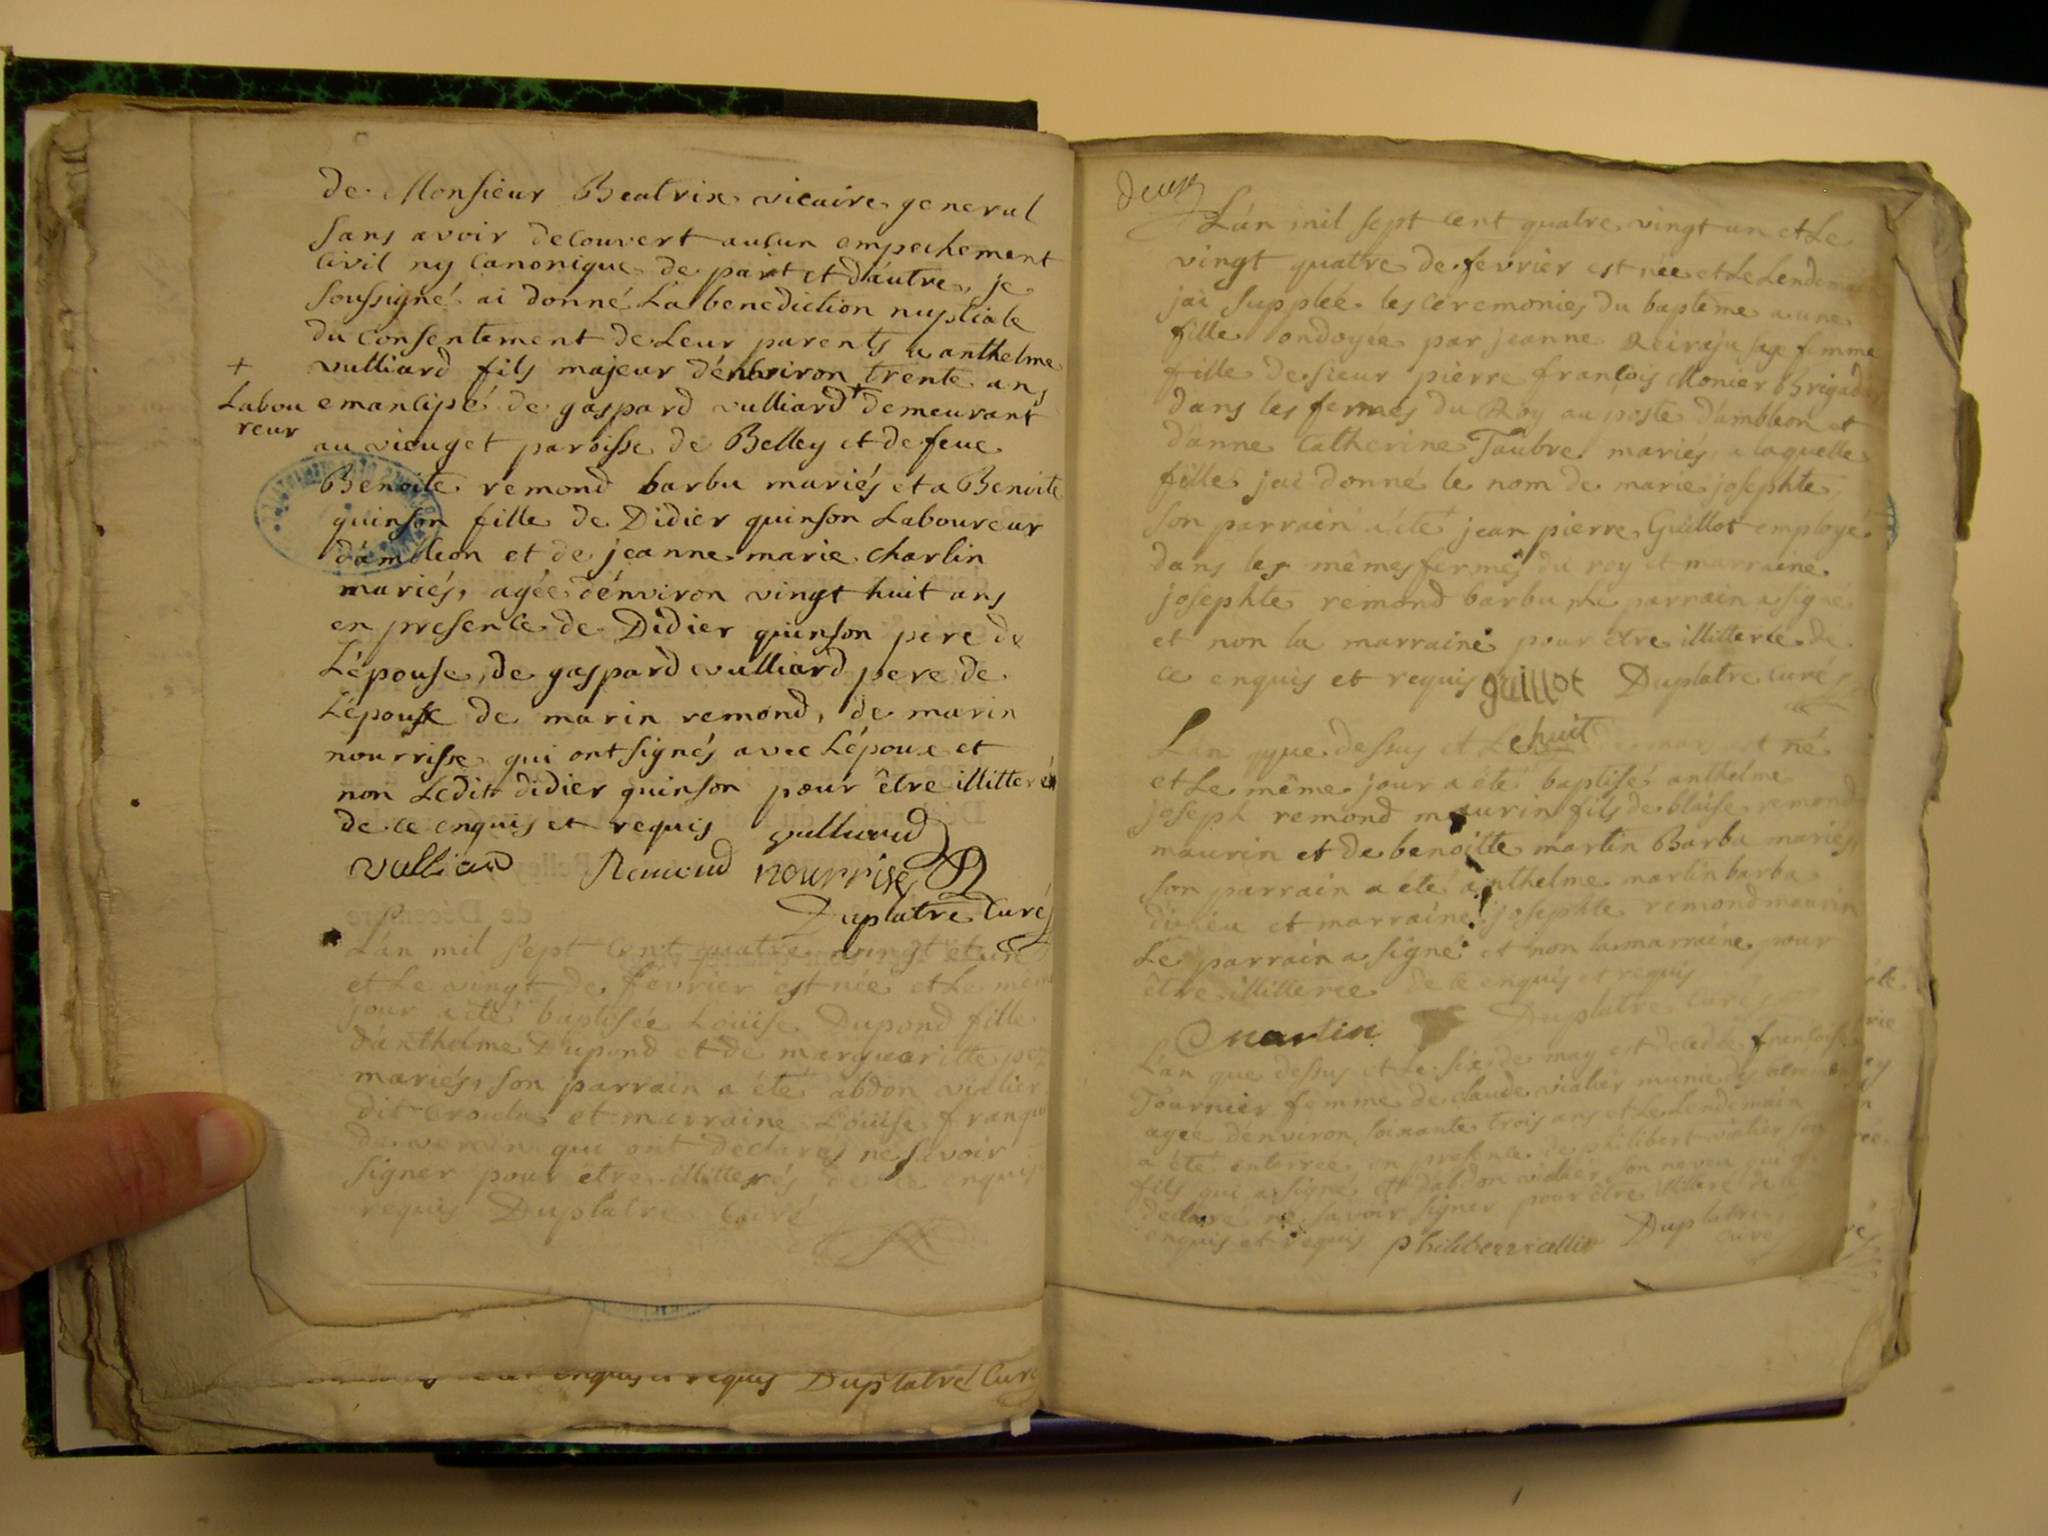 de Monsieur Beatrix vicaire general
sans avoir decouvert aucun empechement
civil ny canonique de part et dáutre, je
soussigné ai donné La benediction nuptiale
du consentement de Leur parents a anthelme
+ vulliard fils majeur dénviron trente ans
Labou emancipé de gaspard vulliard + demeurant
reur au vieuget paroisse de Belley et de feue
Benoite remond barbu mariés et a Benoite
quinson fille de Didier quinson Laboureur
dámbleon et de jeanne marie charlin
mariés, agée dénviron vingt huit ans
en presence de Didier quinson pere de
Lépouse, de gaspard vulliard pere de
Lépoux de marin remond, de marin
nourrisse qui ont signés avec Lépoux et
non Ledit didier quinson pour être illitteré
de ce enquis et requis vulliard
vulliard Remond nourrise
Duplatre Curé
Lán mil sept cent quatre vingt et un
et Le vingt de fevrier est née et Le même
jour a été baptisée Loüise Dupond fille
dánthelme Dupond et de margueritte
mariés, son parrain a été abdon vialier
dit et marraine Loüise
qui ont declarés ne savoir
signer pour etre illitterés de ce enquis
requis Duplatre Curé
enquis et requis Duplatre Curé
deux
Lán mil sept cent quatre vingt un et Le
vingt quatre de fevrier est née et Le Lendemain
jai supplée les ceremonies du baptême a une
fille ondoyée par jeanne sage femme
fille de sieur pierre françois Monier Brigadier
dans les fermes du Roy au poste dámbleon et
dánne Catherine Taubre mariés, a laquelle
fille jai donné le nom de marie josephte,
son parrain a été jean pierre Guillot employé
dans les mêmes fermes du roy et marraine
josephte remond barbu Le parrain a signé
et non la marraine pour etre illitterée de
ce enquis et requis guillot Duplatre curé
Lán que dessus et Le huit mars est né
et Le même jour a été baptisé anthelme
joseph remond maurin fils de blaise remond
maurin et de benoitte martin Barbu mariés,
son parrain a été anthelme martin barba
et marraine josephte remond maurin
Le parrain a signé et non la marraine pour
être illitterée de ce enquis et requis
martin Duplatre Curé
Lán que dessus et Le six de may est decedée françoise
Tournier femme de claude vialier munie des
agée dénviron soixante trois ans et Le Lendemain
a été enterrée en presence de philibert vialier son
fils qui a signé et dabdon vialier son neveu qui a
declaré ne savoir signer pour être illitteré de ce
enquis et requis philibert viallier Duplatre
curé